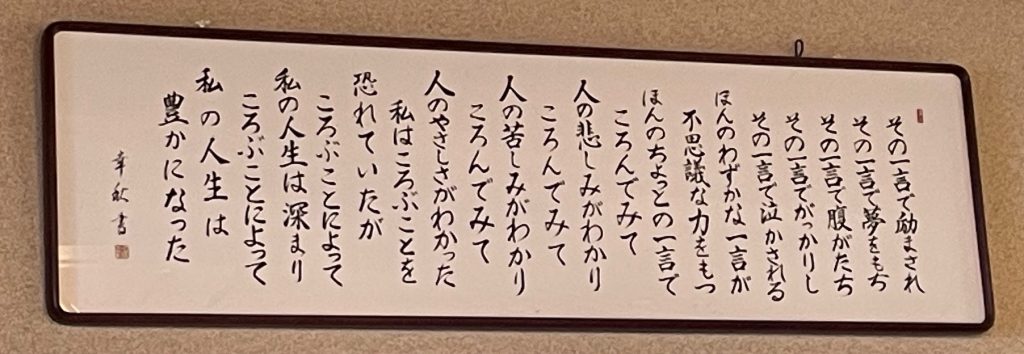 その一言で励まされ
その一言で夢をもち
その一言で腹がたち
その一言でがっかりし
その一言で泣かされる
ほんのわずかな一言が
不思議な力をもつ
ほんのちょっとの一言で
ころんでみて
人の悲しみがわかり
ころんでみて
人の苦しみがわかり
ころんでみて
人のやさしさがわかった
私はころぶことを
恐れていたが
ころぶことによって
私の人生は深まり
ころぶことによって
私の人生は
豊かになった
幸秋書